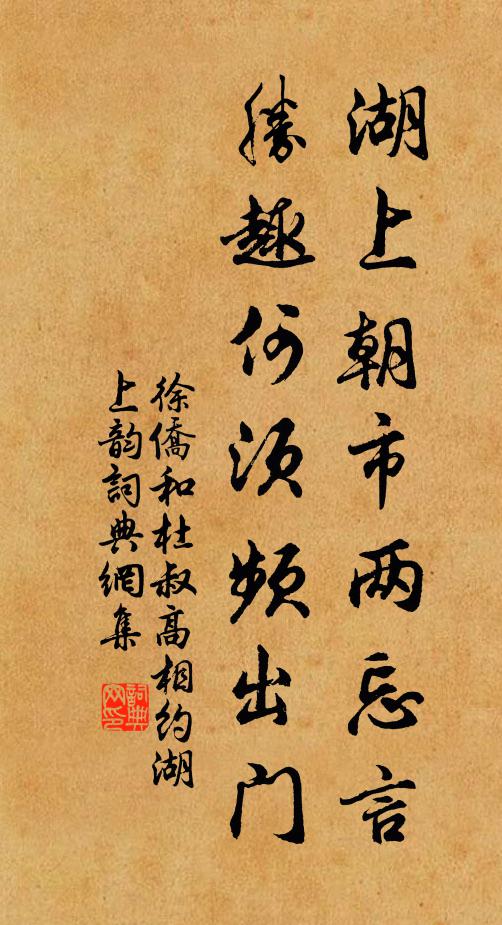 湖上朝市两忘言
勝趣何须频出门
徐僑和杜叔高相约湖
上韵詞典網集
詞典
网印